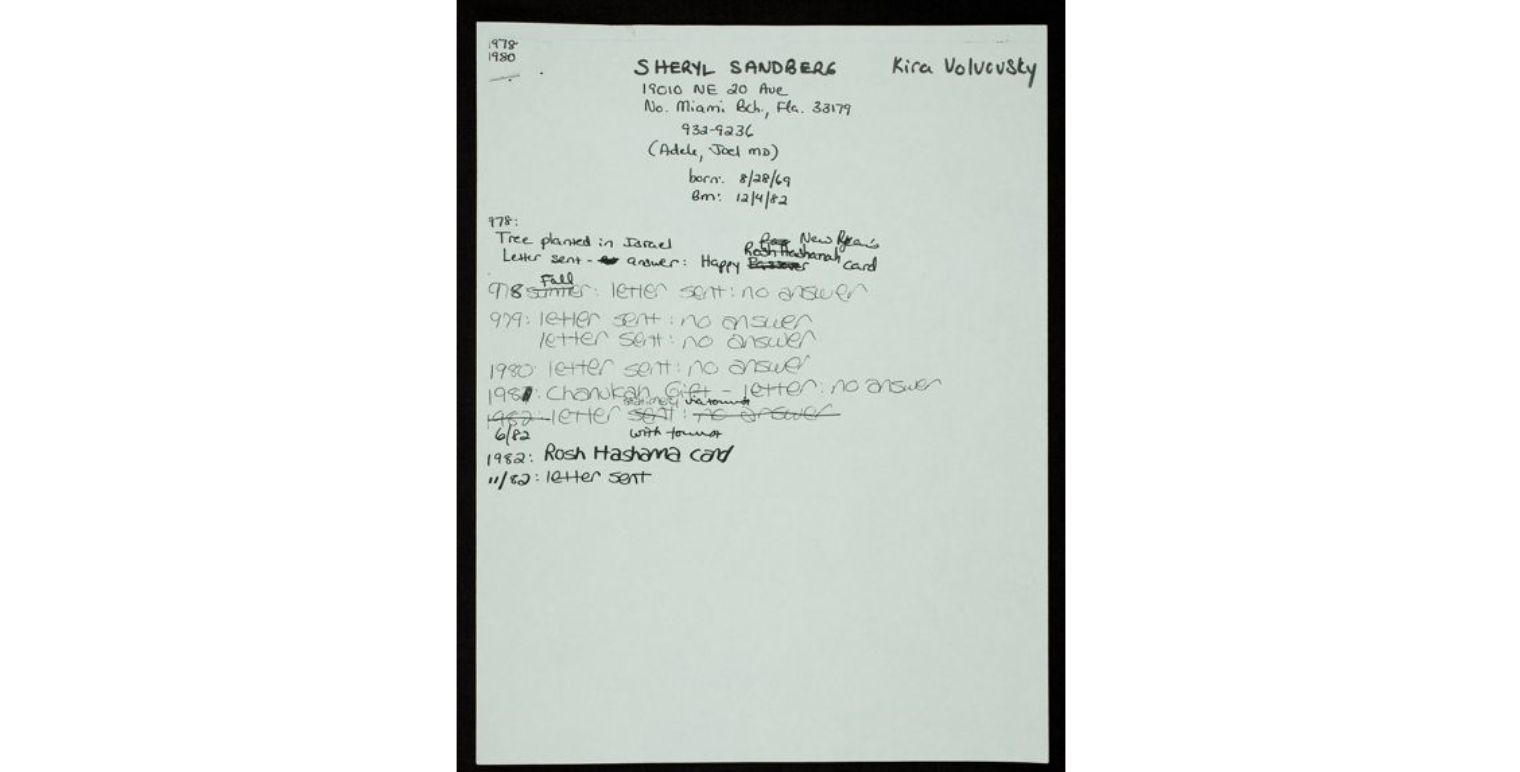 1978
1980
SHERYL SANDBERG Kira Volvovsky
19010 NE 20 Ave
No. Miami Bch., Fla. 33179
932-9236
(Adele, Joel MD)
born: 8/28/69
Bm: 12/4/82
978:
Tree planted in Israel
New Year's
Rosh Hashanah
Letter sent - answer: Happy Passover card
Fall
978 summer: letter sent: no answer
979: letter sent: no answer
letter sent: no answer
1980: letter sent: no answer
1981: Chanukah Gift - letter: no answer
via tourist
1982: letter sent: no answer
6/82 with tourist
1982: Rosh Hashana card
11/82: letter sent